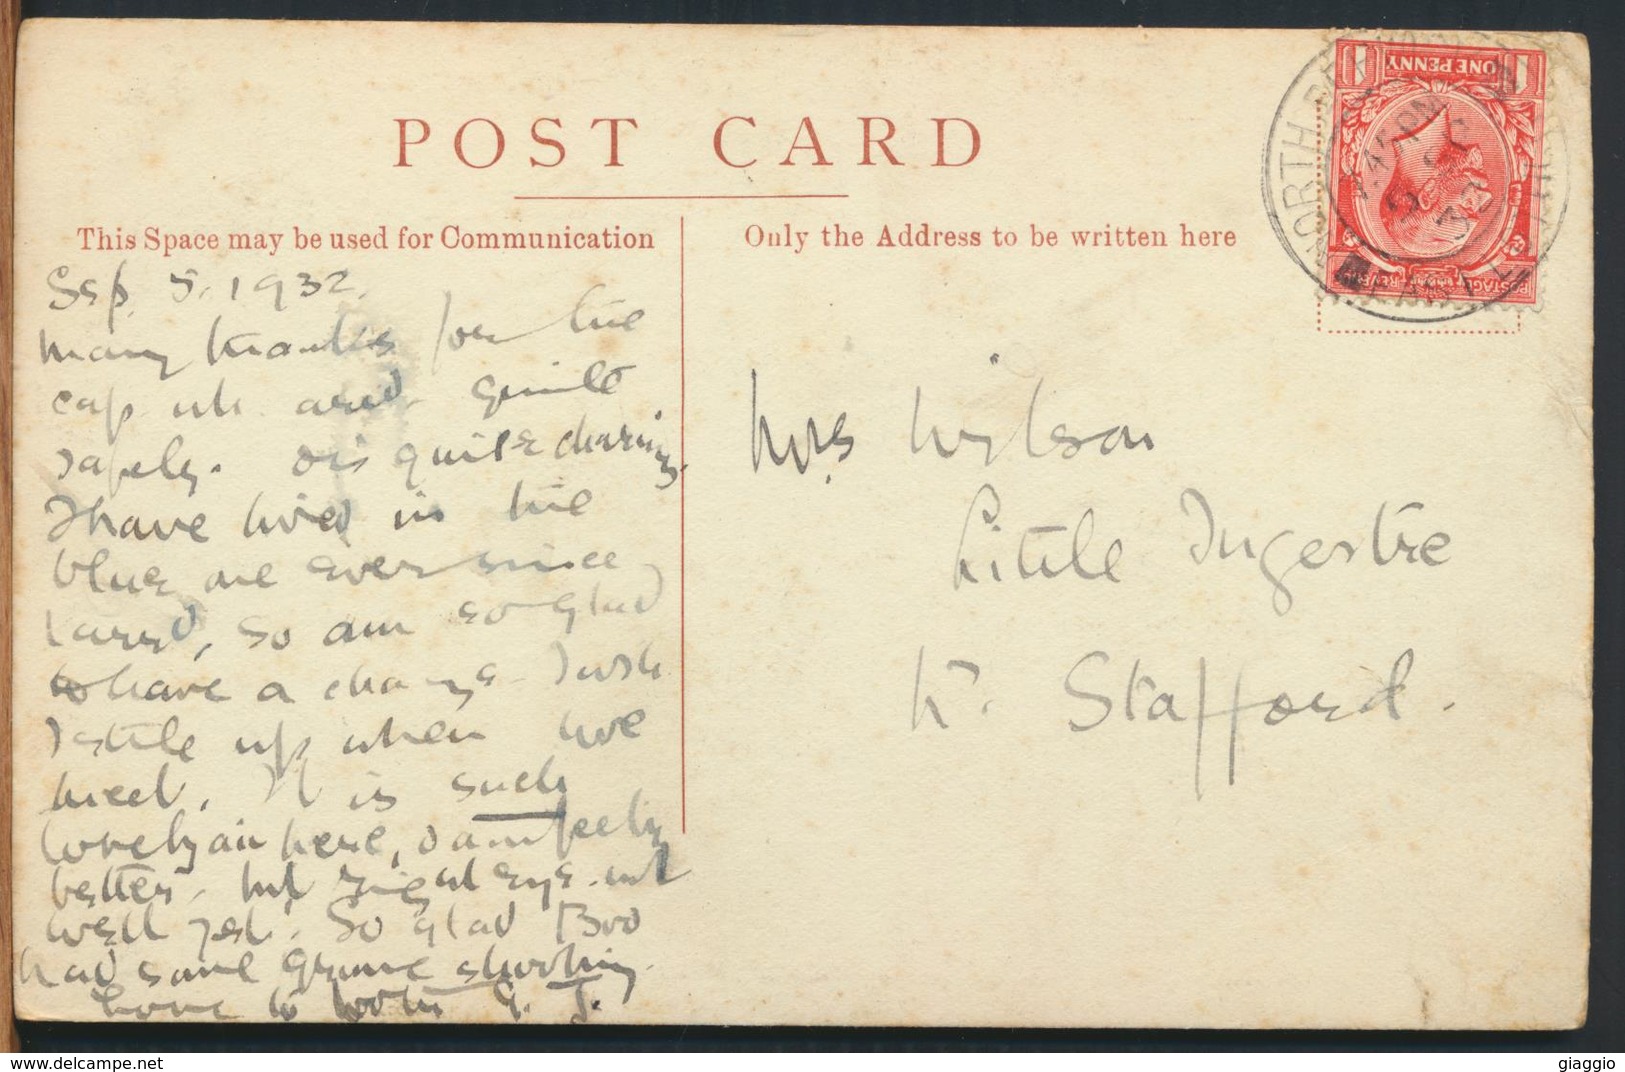 POST CARD
This Space may be used for Communication
Only the Address to be written here
ONE PENNY
NORTH BERWICK
5 SP
32
Sep. 5. 1932.
Many thanks for the
cap wh. arrd. quite
safely. is quite charming.
I have lived in the
blue one ever since
I arrd, so am so glad
to have a change I wish
I stile up when we
meet. It is such
lovely air here, I am feeling
better, but right eye not
well yet. So glad Boo
had some grouse shooting.
Love to both G. J.
Mrs Wilson
Little Ingestre
Nr. Stafford.
giaggio